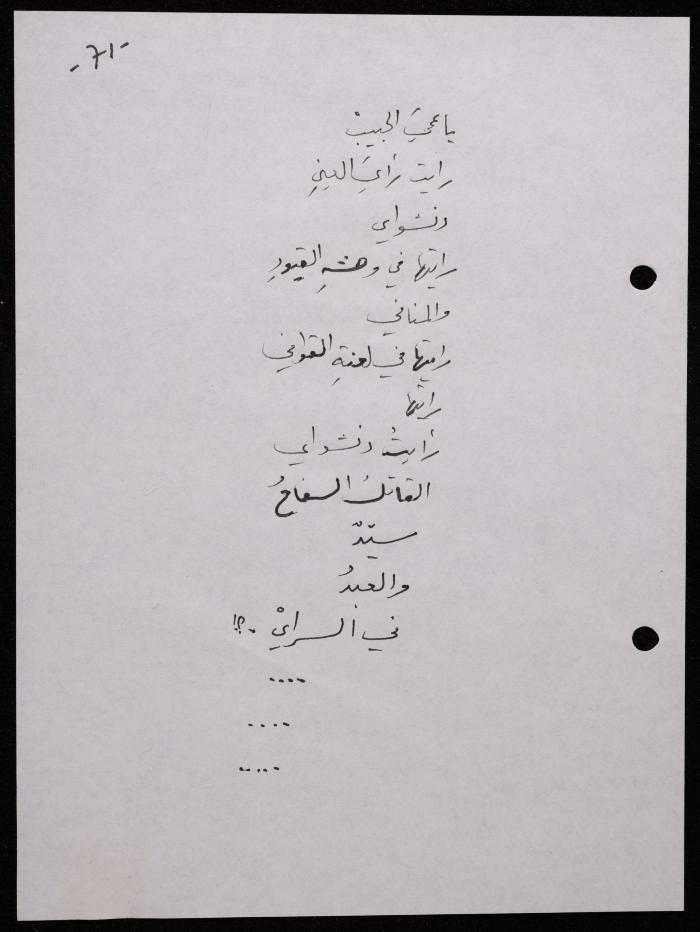 -71-
يا عمّيَ الحبيبْ
رأيت رَأيَ العينِ
دنشواي
رايتها في وحشةِ القيودِ
والمنافي
رايتها في لعنةِ القوافي
رايتها
رأيتُ دنشواي
القاتلُ السفاحُ
سيّدٌ
والعبدُ
في السرايْ .؟!
....
....
.....